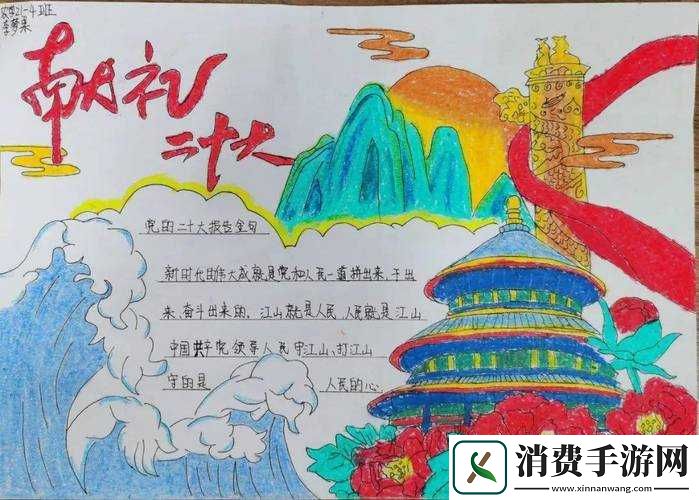 农学21-4班
李梦果
献礼
二十大
党的二十大报告金句
新时代的伟大成就是党和人民一道拼出来、干出
来、奋斗出来的,江山就是人民,人民就是江山
中国共产党领导人民守江山、打江山
守的是 人民的心
消费手游网
www.xinnanwang.com